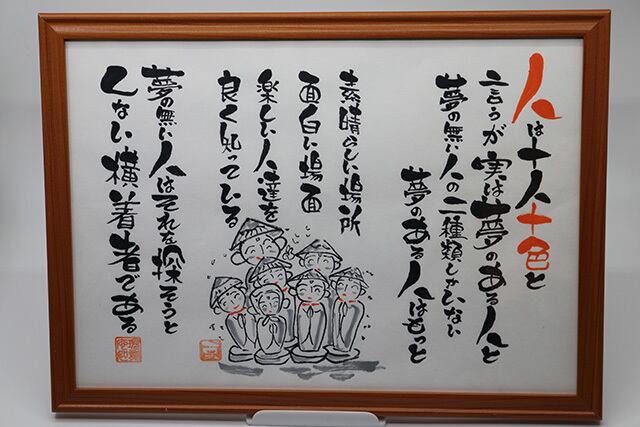 人は十人十色と
言うが実は夢のある人と
夢の無い人の二種類しかいない
夢のある人はもっと
素晴らしい場所
面白い場面
楽しい人達を
良く知っている
夢の無い人はそれを探そうと
しない横着者である